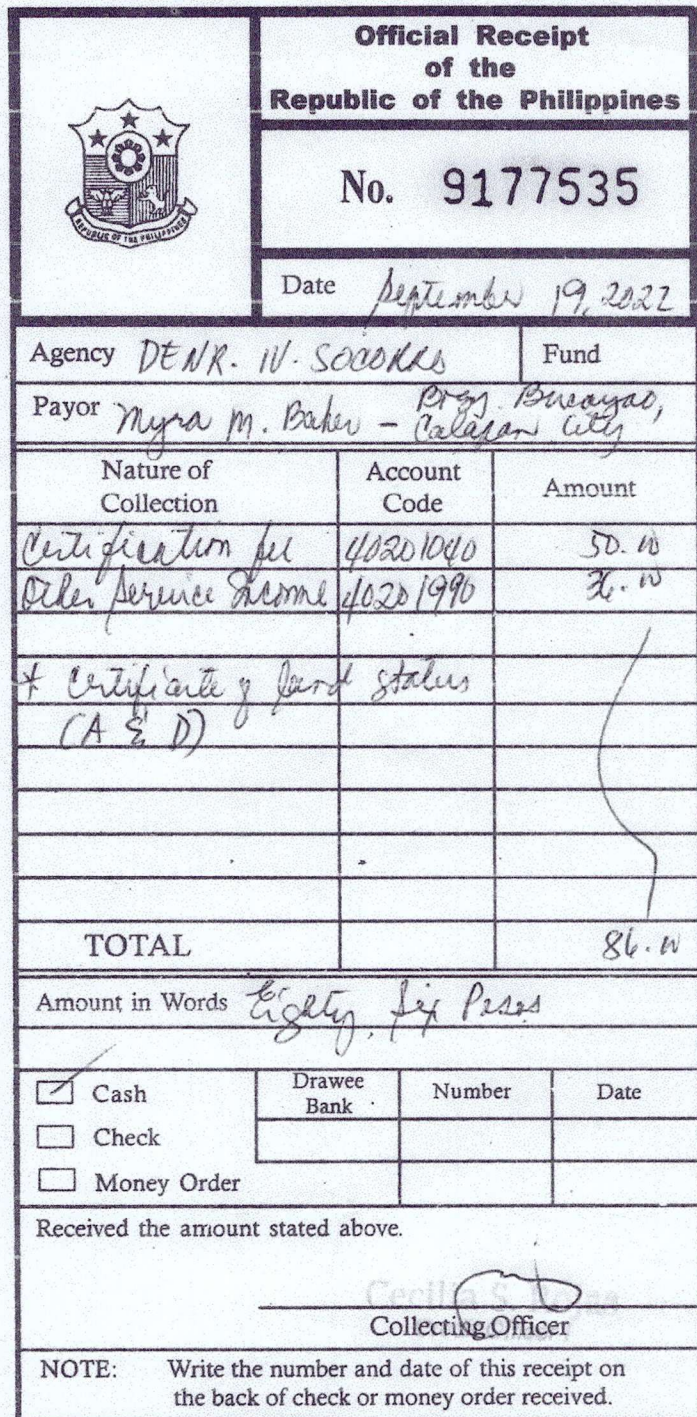 Official Receipt
of the
Republic of the Philippines
REPUBLIC OF THE PHILIPPINES
No. 9177535
Date September 19, 2022
Agency DENR. IV. SOCORRO Fund
Payor Myra M. Baker - Brgy. Bucayao,
Calapan City
Nature of Collection Account Code Amount
Certification fee 40201040 50.00
Other Service Income 40201990 36.00
* Certificate of land status
(A & D)
TOTAL 86.00
Amount in Words Eighty, Six Pesos
Cash Drawee Bank Number Date
Check
Money Order
Received the amount stated above.
Cecilia S. Rojas
Collecting Officer
NOTE: Write the number and date of this receipt on
the back of check or money order received.